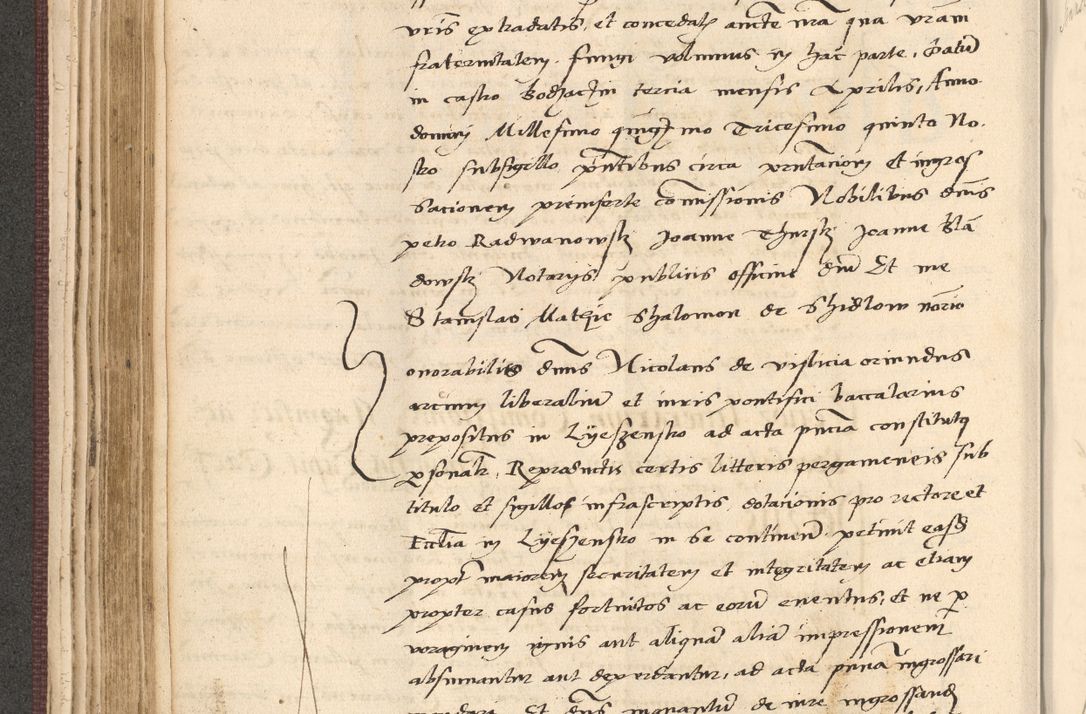 vris extradatis, et concedatis auncte nra qua vram
fraternitatem fungi volumus in hac parte, Datum
in castro Bodzaczin tercia mensis Aprilis, Anno
domini Millesimo quingmo Tricesimo quinto No
stro subsigillo, pntibus circa pntacionem et ingros
sacionem preinserte comissionis Nobilibus dnis
petro Radwanowski Joanne Thurski Joanne Bla
dowski Notarys publicis officine dni Et me
Stanislao Mathie Shalomon de Shidlow notrio
onorabilis dnus Nicolaus de vislicia oriundus
arcium liberalium et iuris pontificii baccalarius
prepositus in Lyeszensko ad acta pncia constitutus
psonalr, Reproductis certis litteris pergameneis sub
titulo et sigillo infrascriptis, dotacionis pro rectore et
Ecclia in Lyeszensko in se continen petiuit easd
propt maiorem securitatem et integritatem ac etiam
propter casus fortuitos ac eorum euentus, et ne p
voraginem ignis aut aliquam aliam impressionem
absumantur aut deperdantur, ad acta pncia ingrossari
mandari Et dns de iure ingrossand